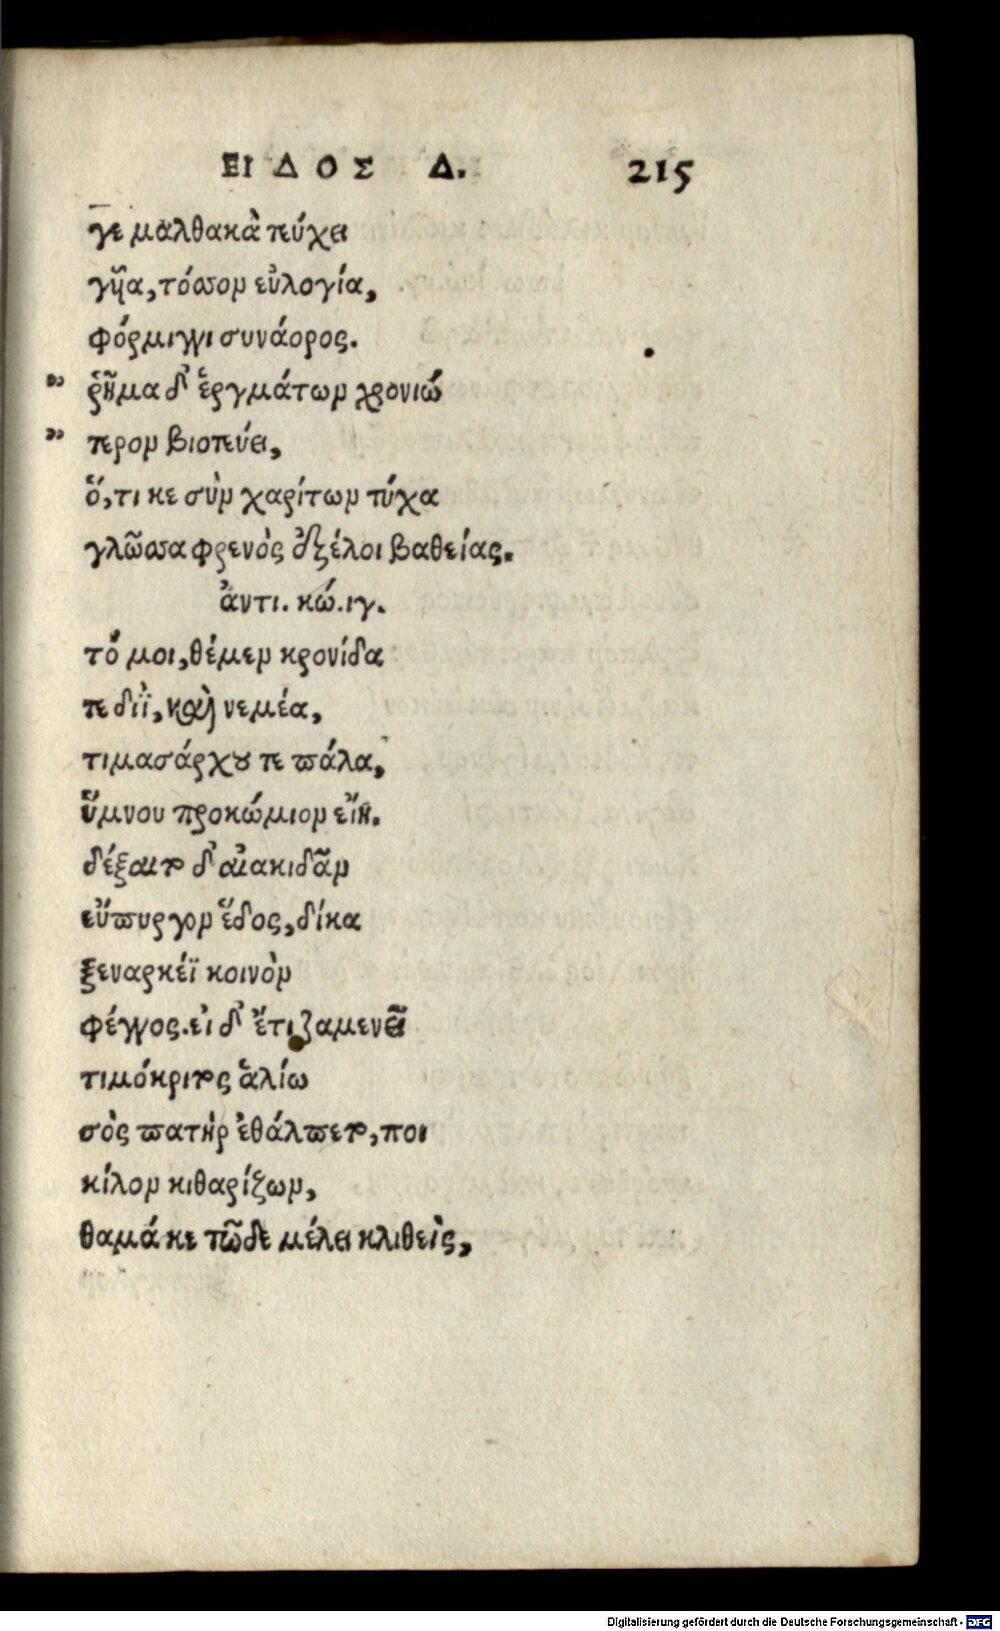 ΕΙΔΟΣ Δ. 215
γε μαλθακὰ τεύχει
γῆα, τόσσον εὐλογία,
φόρμιγγι συνάορος.
" ῥῆμα δ' ἑργμάτων χρονιώ
" τερον βιοτεύει,
ὅ,τι κε σὺν χαρίτων τύχα
γλῶσσα φρενὸς ἐξέλοι βαθείας.
ἀντι. κώ. ιγ.
τό μοι, θέμεν κρονίδα
τε διῒ, καὶ νεμέα,
τιμασάρχου τε πάλα,
ὕμνου προκώμιον εἴη.
δέξαιτο δ' αἰακιδᾶν
εὔπυργον ἕδος, δίκα
ξεναρκέϊ κοινὸν
φέγγος. εἰ δ' ἔτι ζαμενεῖ
τιμόκριτος ἁλίω
σὸς πατὴρ ἐθάλπετο, ποι
κίλον κιθαρίζων,
θαμά κε τῶδε μέλει κλιθεὶς,
Digitalisierung gefördert durch die Deutsche Forschungsgemeinschaft - DFG